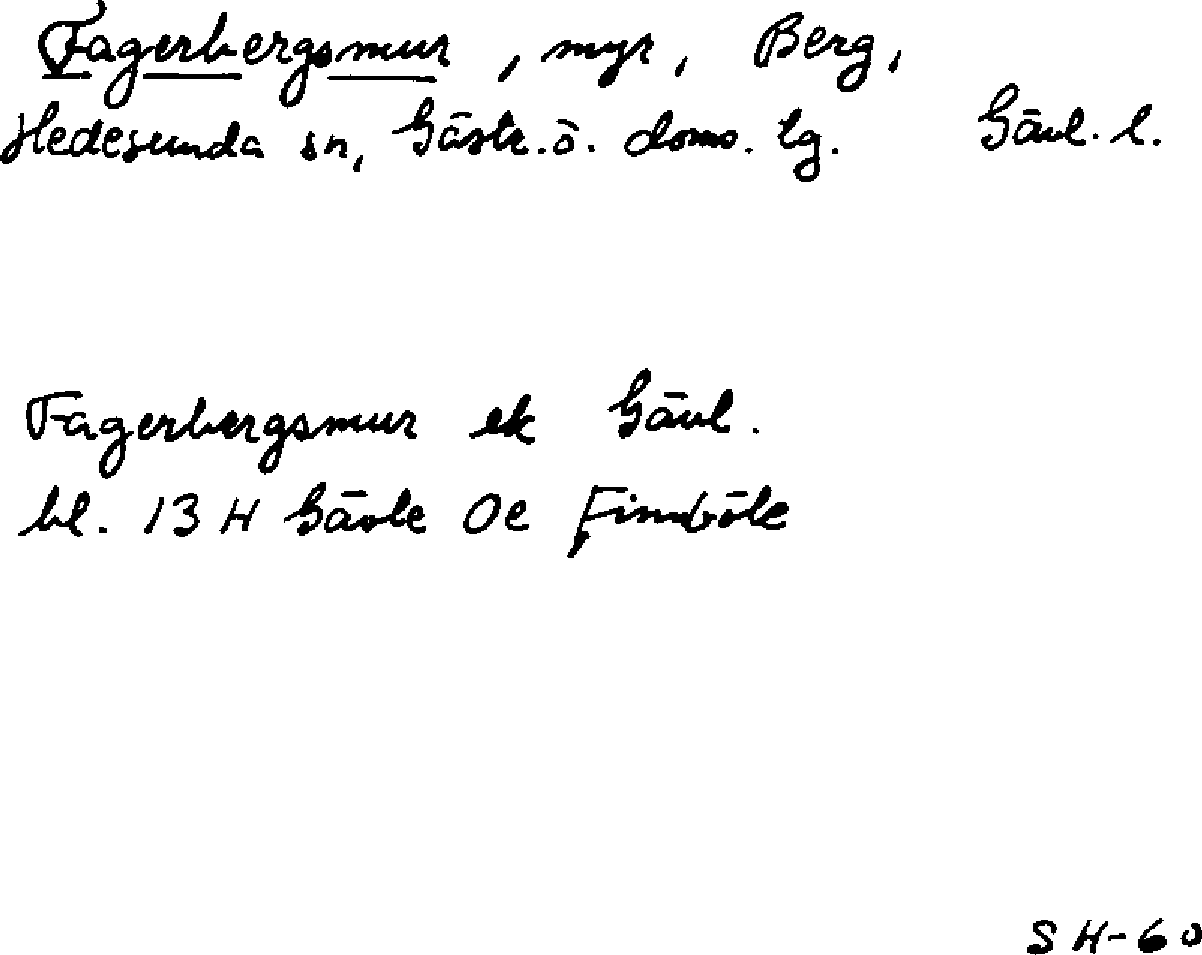 Fagerbergsmur, myr, Berg,
Hedesunda sn, Gästr. ö. doms. tg. Gävl. l.
Fagerbergsmur ek Gävl.
bl. 13 H Gävle Oe Finnböle
SH-60